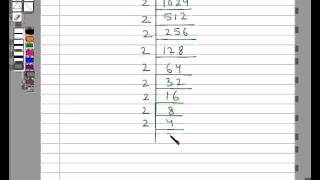 2 1024
2 512
2 256
2 128
2 64
2 32
2 16
2 8
2 4